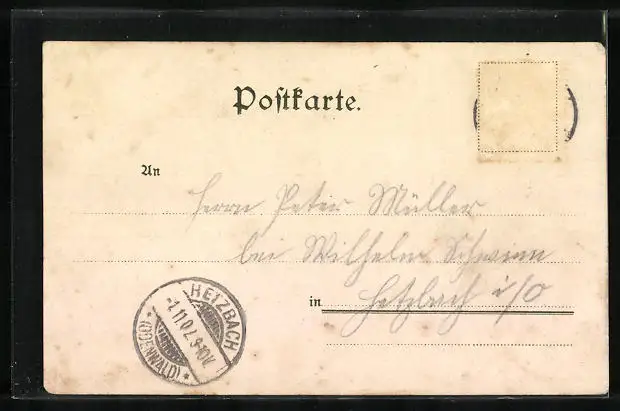 Postkarte.
An
Herrn Peter Müller
bei Wilhelm Schwinn
in Hetzbach i/O
HETZBACH
-1.11.02.9-10V.
*(ODENWALD)*